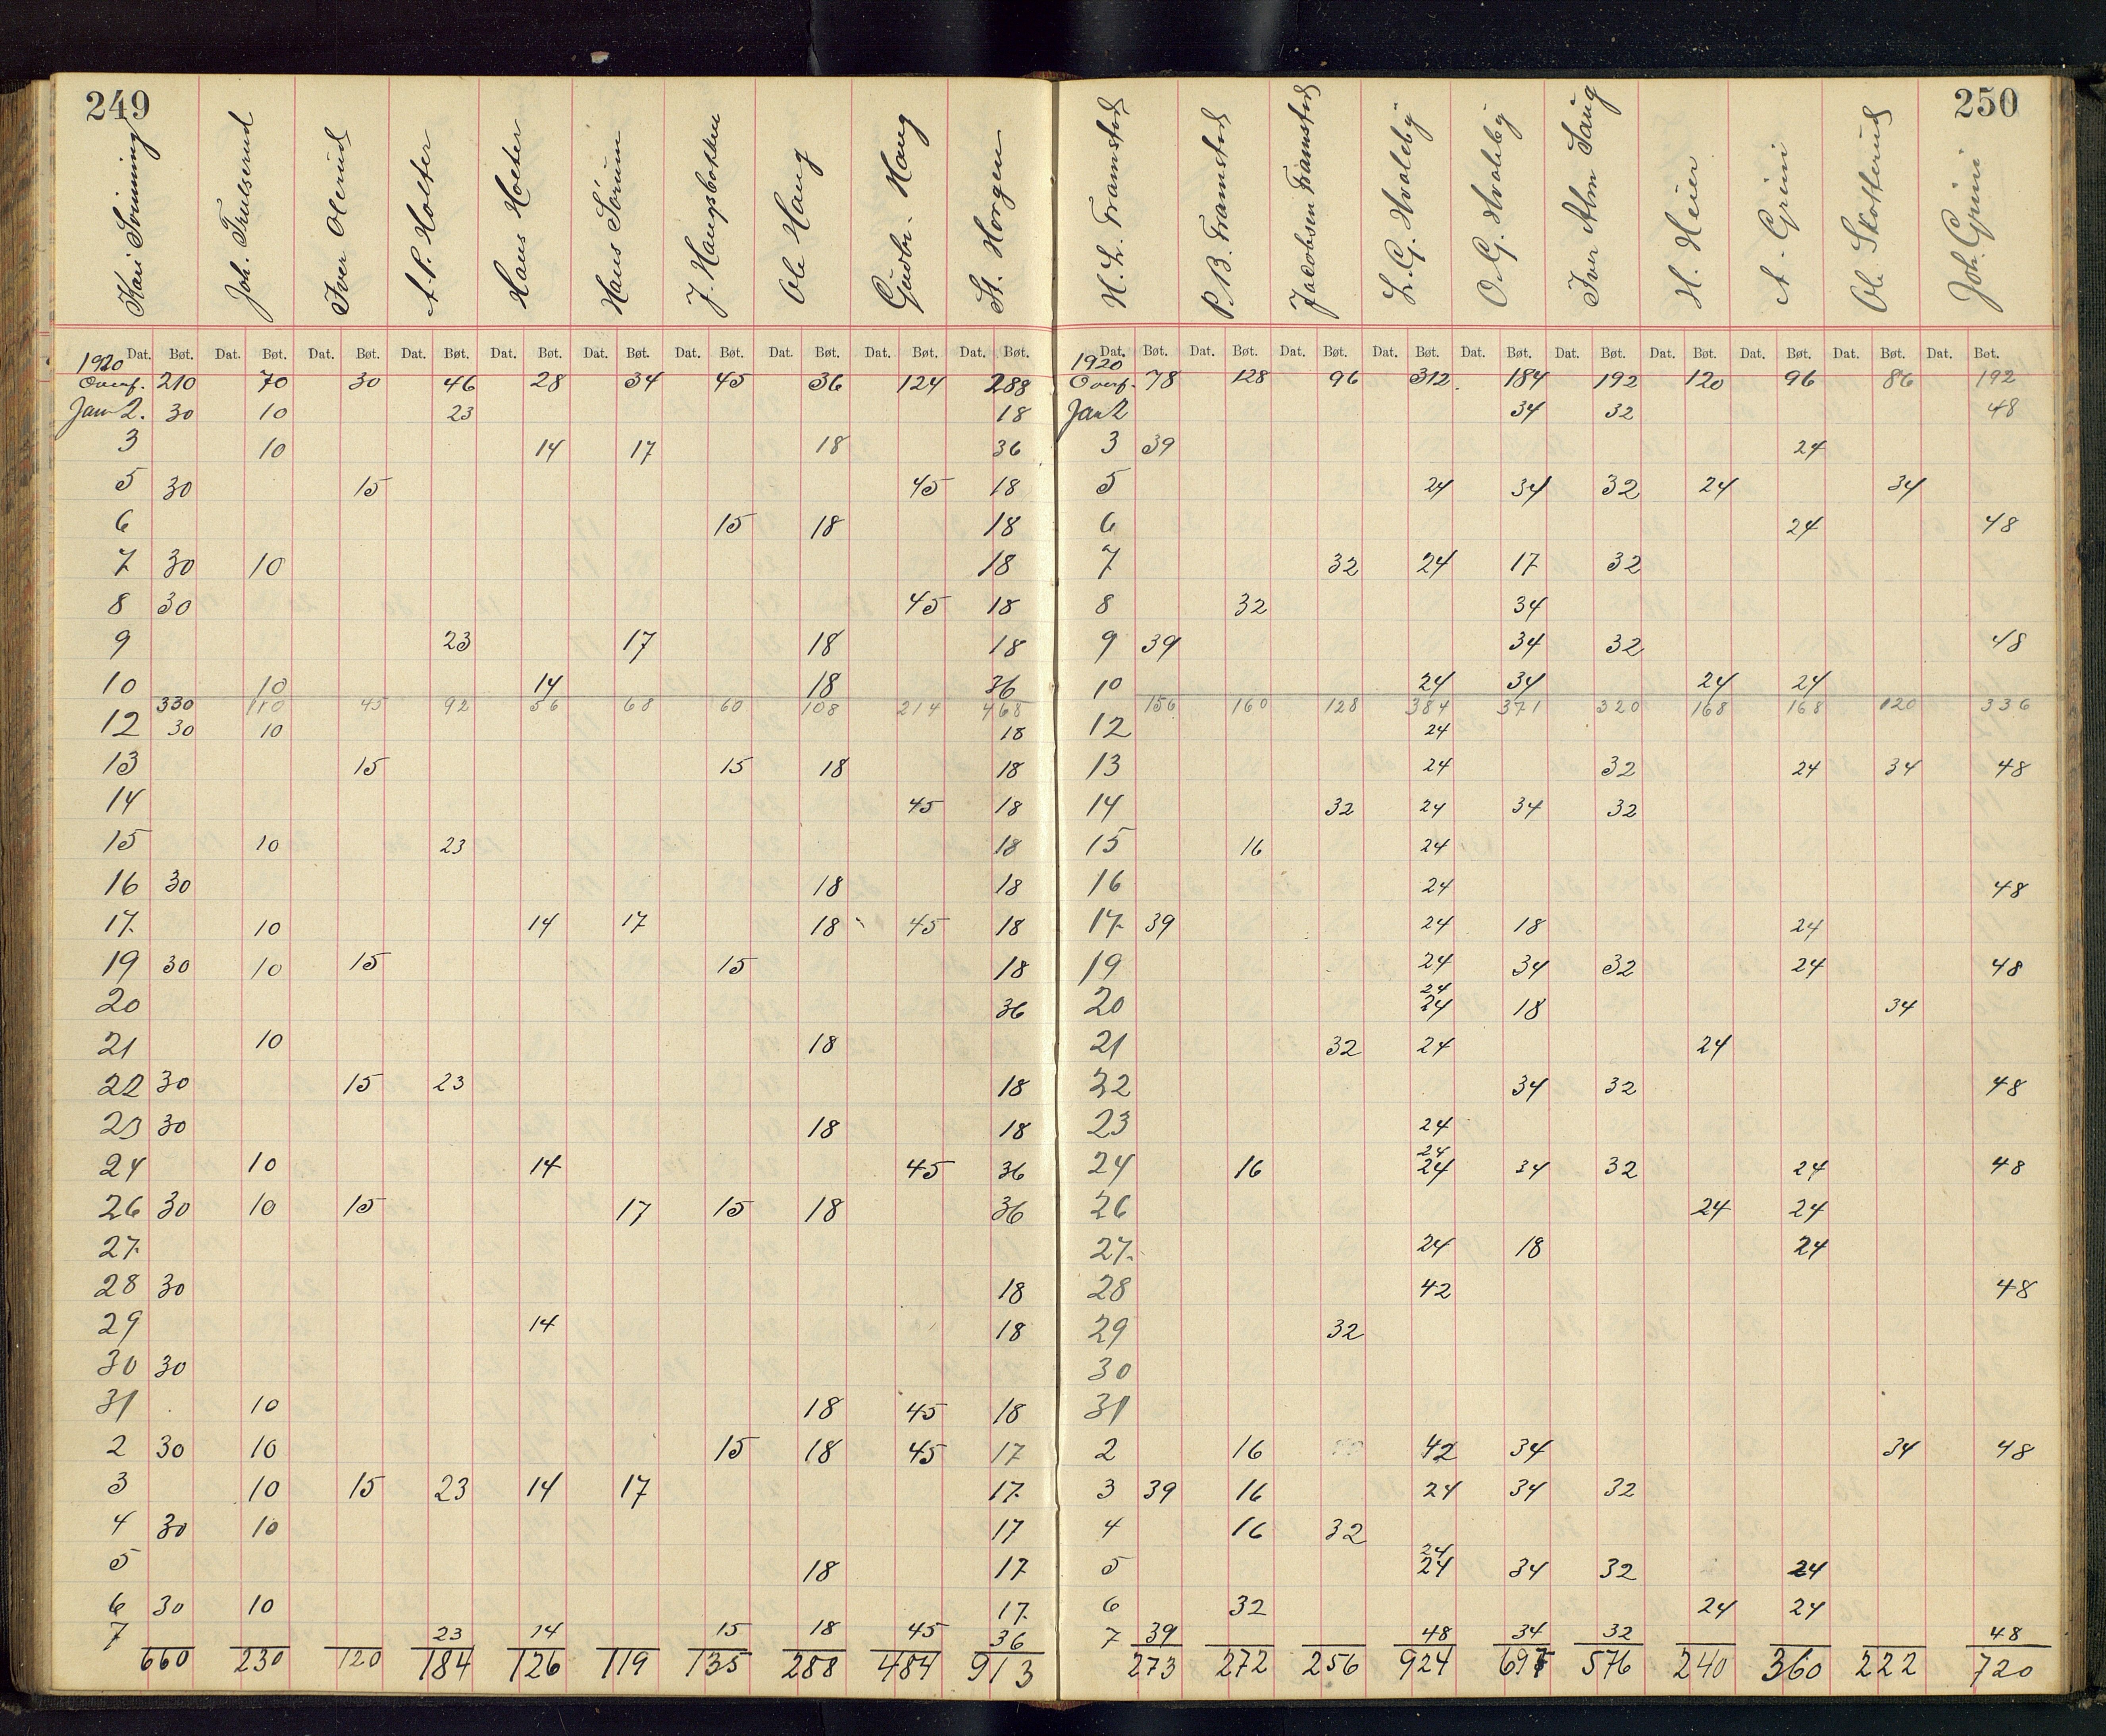 249
Kari Svinning Joh. Trulserud Iver Olerud A. P. Holter Hans Holter Hans Sørum J. Haugsbakken Ole Haug Gudbr. Haug St. Horgen
1920 Dat. Bøt. Dat. Bøt. Dat. Bøt. Dat. Bøt. Dat. Bøt. Dat. Bøt. Dat. Bøt. Dat. Bøt. Dat. Bøt. Dat. Bøt.
Overf. 210 70 30 46 28 34 45 36 124 288
Jan 2. 30 10 23 18
3 10 14 17 18 36
5 30 15 45 18
6 15 18 18
7 30 10 18
8 30 45 18
9 23 17 18 18
10 10 14 18 36
330 110 45 92 56 68 60 108 214 468
12 30 10 18
13 15 15 18 18
14 45 18
15 10 23 18
16 30 18 18
17. 10 14 17 18 45 18
19 30 10 15 15 18
20 36
21 10 18
22 30 15 23 18
23 30 18 18
24 10 14 45 36
26 30 10 15 17 15 18 36
27.
28 30 18
29 14 18
30 30
31 10 18 45 18
2 30 10 15 18 45 17
3 10 15 23 14 17 17.
4 30 10 17
5 18 17
6 30 10 17.
7 23 14 15 18 45 36
660 230 120 184 126 119 135 288 484 913
250
H. L. Framstad P. B. Framstad Jacobsen Framstad L. G. Hvaleby O. G. Hvaleby Iver Alm Haug H. Heier A. Grini Ole Skotterud Joh. Grini
1920 Dat. Bøt. Dat. Bøt. Dat. Bøt. Dat. Bøt. Dat. Bøt. Dat. Bøt. Dat. Bøt. Dat. Bøt. Dat. Bøt. Dat. Bøt.
Overf. 78 128 96 312. 184 192 120 96 86 192
Jan 2 34 32 48
3 39 24
5 24 34 32 24 34
6 24 48
7 32 24 17 32
8 32 34
9 39 34 32 48
10 24 34 24 24
156 160 128 384 371 320 168 168 120 336
12 24
13 24 32 24 34 48
14 32 24 34 32
15 16 24
16 24 48
17. 39 24 18 24
19 24 34 32 24 48
24
20 24 18 34
21 32 24 24
22 34 32 48
23 24
24
24 16 24 34 32 24 48
26 24 24
27. 24 18 24
28 42 48
29 32
30
31
2 16 42 34 34 48
3 39 16 24 34 32
4 16 32
24
5 24 34 32 24
6 32 24 24
7 39 48 34 32 48
273 272 256 924 697 576 240 360 222 720